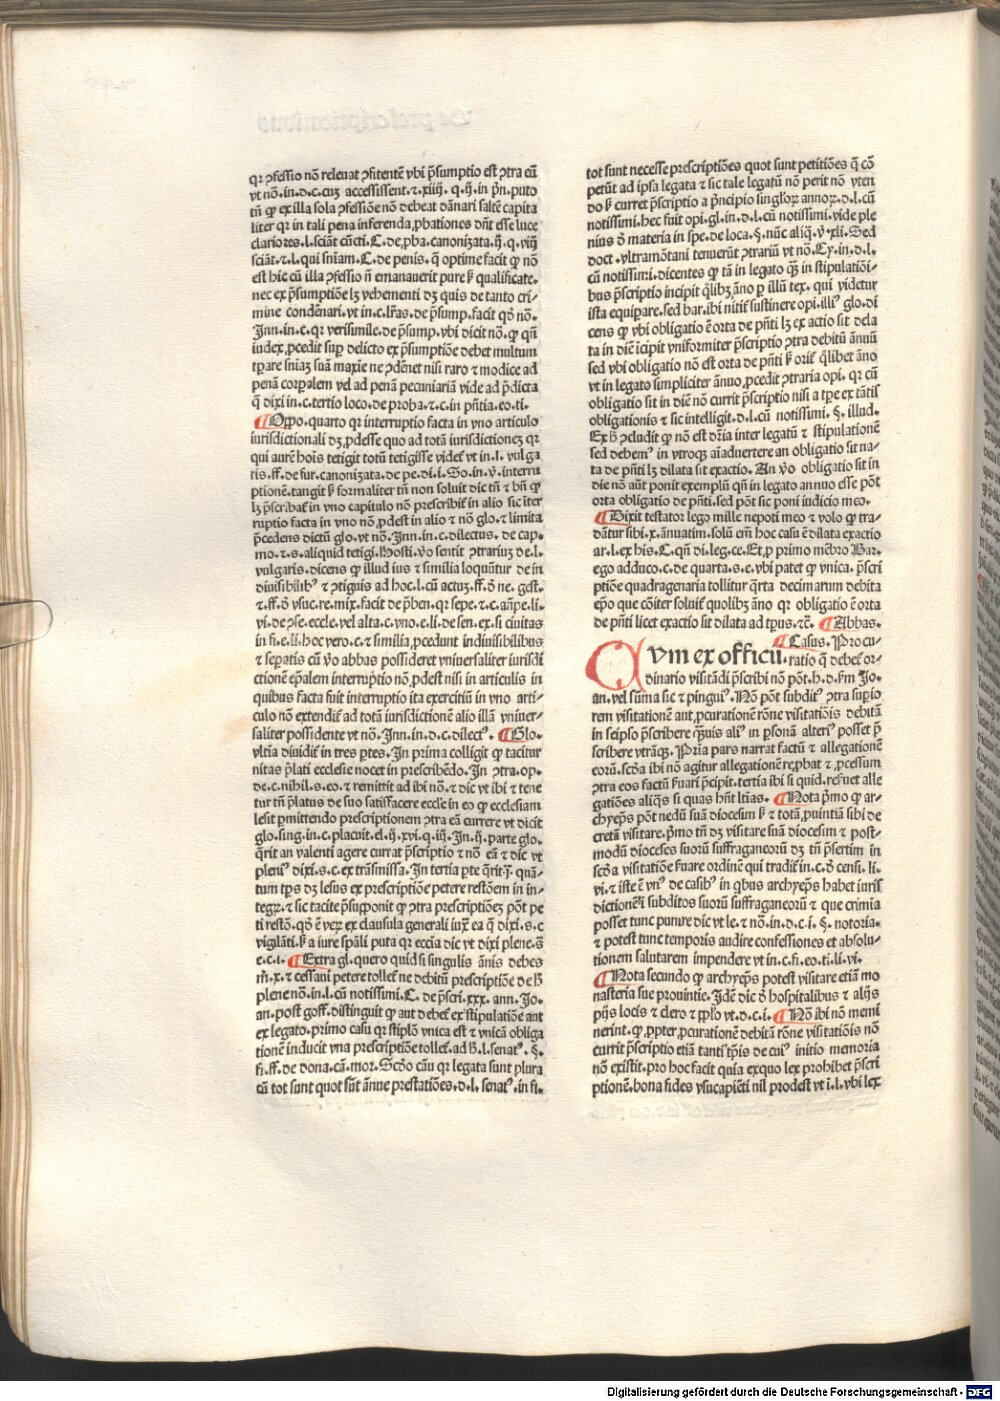 qr ꝯfessio nō releuat ꝯfitentē vbi p̄sumptio est ꝯtra eū
vt nō.in.d.c.cuȝ accessissent.⁊.xiiij.q.ij.in pn̄.puto
tn̄ ꝙ ex illa sola ꝯfessiōe nō debeat dānari saltē capita
liter qr in tali pena inferenda ꝓbationes dn̄t esse luce
clariores.l.sciāt cūcti.C.de ꝓba.canonizata.ij.q.viij
sciāt.⁊.l.qui sniam.C.de penis.q̄ optime facit ꝙ nō
est hic cū illa ꝯfessio n̄ emanauerit pure ꝭ qualificate.
nec ex p̄sumptiōe lȝ vehementi dȝ quis de tanto cri-
mine condēnari.vt in.c.lr̄as.de p̄sump.facit qȝ nō.
Inn.in.c.qr verisimile.de p̄sump.vbi dicit nō.ꝙ qn̄
iudex ꝓcedit sup̱ delicto ex p̄sumptiōe debet multum
tp̱are sniaȝ suā maxie ne ꝯdēnet nisi raro ⁊ modice ad
penā corpalem vel ad penā pecuniariā vide ad p̄dicta
q̄ dixi in.c.tertio loco.de proba.⁊.c.in pn̄tia.eo.ti.
¶Oppo.quarto qr interruptio facta in vno articulo
iurisdictionali dȝ ꝓdesse quo ad totā iurisdictioneȝ qr
qui aurē hois tetigit totū tetigisse videt̄ vt in.l.vulga
ris.ff.de fur.canonizata.de pe.di.i.So.in.v̄.interru
ptionē.tangit ꝭ formaliter tn̄ non soluit dic tn̄ ⁊ bn̄ ꝙ
lȝ p̄scribat̄ in vno capitulo nō prescribit̄ in alio sic iter
ruptio facta in vno nō ꝓdest in alio ⁊ nō glo.⁊ limita
p̄cedens dictū glo.vt nō.Inn.in.c.dilectus.de cap-
mo.⁊.s.aliquid tetigi.Hosti.v̄o sentit ꝯtrariuȝ de.l.
vulgaris.dicens ꝙ illud ius ⁊ similia loquūtur de in
diuisibilibꝰ ⁊ ꝯtiguis ad hoc.l.cū actuȝ.ff.ð ne.gest.
⁊.ff.ð vsuc.re.mix.facit de p̄ben.qr sepe.⁊.c.an̄pe.li.
vi.de ꝯse.eccle.vel alta.c.vno.e.li.de sen.ex.si ciuitas
in fi.e.li.hoc vero.c.⁊ similia ꝓcedunt indiuisibilibus
⁊ sep̱atis cū v̄o abbas possideret vniuersaliter iurisdi
ctionē ep̄alem interruptio nō ꝓdest nisi in articulis in
quibus facta fuit interruptio ita exercitiū in vno arti-
culo nō extendit̄ ad totā iurisdictionē alio illā vniuer-
saliter possidente vt nō.Inn.in.d.c.dilectꝰ. ¶Glo.
vltia diuidit̄ in tres p̱tes.In prima colligit ꝙ tacitur
nitas p̄lati ecclesie nocet in prescribēdo.In ꝯtra.op-
de.c.nihil.s.eo.⁊ remittit ad ibi nō.⁊ dic vt ibi ⁊ tene
tur tn̄ p̄latus de suo satisfacere eccle in eo ꝙ ecclesiam
lesit ꝑmittendo prescriptionem ꝯtra eā currere vt dicit
glo.sing.in.c.placuit.el.ij.xvi.q.iij.In.ij.parte glo.
q̄rit an valenti agere currat p̄scriptio ⁊ nō eā ⁊ dic vt
pleniꝰ dixi.s.c.ex trāsmissa.In tertia p̱te q̄rit̄.quā-
tum tp̱s dȝ lesus ex prescriptiōe petere restōem in in-
tegȝ.⁊ sic tacite p̄supponit ꝙ ꝯtra prescriptiōeȝ pōt pe
ti restō.qȝ ē veȝ ex clausula generali iux̄ ea q̄ dixi.s.c
vigilāti.ꝭ a iure sp̄ali puta qr eccia dic vt dixi plene.s̄
e.c.i. ¶Extra gl.quero quid si singulis ānis debes
m̄.x.⁊ cessaui petere tollet̄ ne debitū prescriptiōe de ħ
plene nō.in.l.cū notissimi.C.de p̄scri.xxx.ann.Jo-
an.post goff.distinguit ꝙ aut debet̄ ex stipulatiōe aut
ex legato.primo casu qr stip̄lō vnica est ⁊ vnicā obliga
tionē inducit vna prescriptiōe tollet̄.ad ħ.l.senatꝰ.§.
fi.ff.de dona.cā.mor.Scd̄o cāu qr legata sunt plura
cū tot sunt quot sūt ānue prestatiōes.d.l.senatꝰ.in fi.
tot sunt necesse prescriptiōes quot sunt petitiōes q̄ cō
petūt ad ipsa legata ⁊ sic tale legatū nō perit nō vten
do ꝭ curret p̄scriptio a p̄ncipio singloȝ annoȝ.d.l.cū
notissimi.hec fuit opi.gl.in.d.l.cū notissimi.vide ple
nius ð materia in spe.de loca.§.nūc aliq̄.v̄.xli.Sed
doct.vltramōtani tenuerūt ꝯtrariū vt nō.Cy.in.d.l.
cū notissimi.dicentes ꝙ tā in legato qȝ in stipulatiōi-
bus p̄scriptio incipit q̄libȝ āno p̱ illū tex.qui videtur
ista equipare.sed bar.ibi nitit̄ sustinere opi.illiꝰ glo.di
cens ꝙ vbi obligatio ē orta de pn̄ti lȝ ex actio sit dela
ta in diē icipit vniformiter p̄scriptio ꝯtra debitū ānuū
sed vbi obligatio nō est orta de pn̄ti ꝭ orit̄ q̄libet āno
vt in legato simpliciter ānuo ꝓcedit ꝯtraria opi.qr cū
obligatio sit in diē nō currit p̄scriptio nisi a tp̱e ex tātis
obligationis ⁊ sic intelligit.d.l.cū notissimi.§.illud.
Ex ħ ꝯcludit ꝙ nō est dr̄ia inter legatū ⁊ stipulationē
sed debemꝰ in vtroqȝ aiaduertere an obligatio sit na-
ta de pn̄ti lȝ dilata sit exactio.An v̄o obligatio sit in
die nō aūt ponit exemplū qn̄ in legato annuo esse pōt
orta obligatio de pn̄ti.sed pōt sic poni indicio meo.
¶Dixit testator lego mille nepoti meo ⁊ volo ꝙ tra-
dātur sibi.x.ānuatim.solū em̄ hoc casu ē dilata exactio
ar.l.ex his.C.qn̄ di.leg.ce.Et ꝓ primo mēbro Bar.
ego adduco.c.de quarta.s.e.vbi patet ꝙ vnica p̄scri
ptiōe quadragenaria tollitur q̄rta decimarum debita
ep̄o que cōiter soluit̄ quolibȝ āno qr obligatio ē orta
de pn̄ti licet exactio sit dilata ad tp̱us.⁊c̄. ¶Abbas.
¶Casus.Procu-
Cvm ex officii.ratio q̄ debet̄ or-
dinario visitādi p̄scribi nō pōt.h.d.ẜm Jo.
an.vel sūma sic ⁊ pinguiꝰ.Nō pōt subditꝰ ꝯtra sup̱io
rem visitationē aut ꝓcurationē rōne visitatiōis debitā
in seipso p̄scribere qȝuis aliꝰ in p̱sonā alteriꝰ posset p̄
scribere vtrāqȝ.Pria pars narrat factū ⁊ allegationē
eorū.scd̄a ibi nō agitur allegationē reꝓbat ⁊ ꝓcessum
ꝯtra eos factū ẜuari p̄cipit.tertia ibi si quid.reẜuet alle
gatiōes aliq̄s si quas hn̄t ltīas. ¶Nota p̄mo ꝙ ar-
chyep̄s pōt nedū suā diocesim ꝭ ⁊ totā ꝓuintiā sibi de
cretā visitare.p̄mo tn̄ dȝ visitare suā diocesim ⁊ post-
modū dioceses suorū suffraganeorū dȝ tn̄ p̄sertim in
scd̄a visitatiōe ẜuare ordinē qui tradit̄ in.c.ð censi.li.
vi.⁊ iste ē vnꝰ de casibꝰ in qbus archyep̄s habet iuris
dictionē ī subditos suorū suffraganeorū ⁊ que crimīa
posset tunc punire dic vt le.⁊ nō.in.d.c.i.§.notoria.
⁊ potest tunc temporis audire confessiones et absolu-
tionem salutarem impendere vt in.c.fi.eo.ti.li.vi.
¶Nota secundo ꝙ archyep̄s potest visitare etiā mo
nasteria sue prouintie.Idē dic ð hospitalibus ⁊ alijs
pijs locis ⁊ clero ⁊ pp̱lo vt.d.c.i. ¶Nō ibi nō memi
nerint.ꝙ ꝓpter ꝓcurationē debitā rōne visitatiōis nō
currit p̄scriptio etiā tanti tp̱is de cuiꝰ initio memoria
nō existit.pro hoc facit quia exquo lex prohibet p̄scri
ptionē.bona fides vsucapiēti nil prodest vt i.l.vbi lex
Digitalisierung gefördert durch die Deutsche Forschungsgemeinschaft - DFG